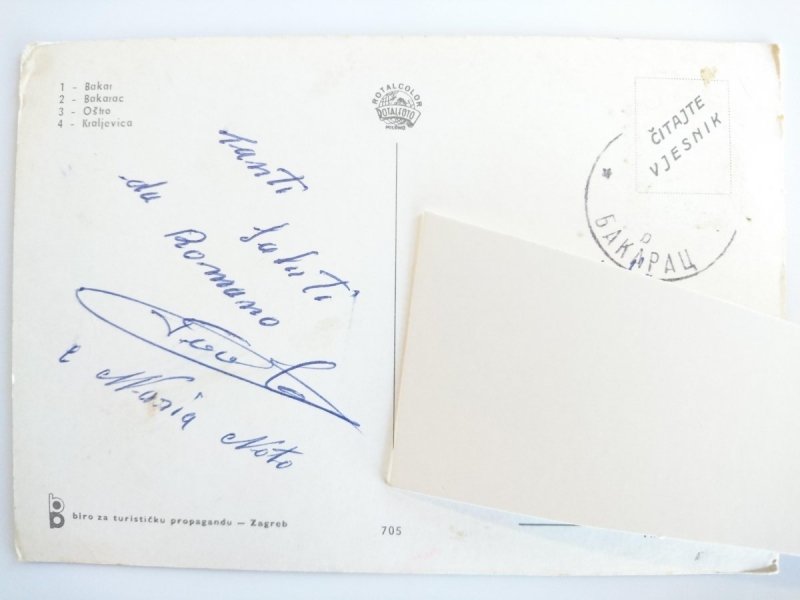 1 - Bakar
2 - Bakarac
3 - Oštro
4 - Kraljevica
ROTALCOLOR
ROTALFOTO
MILANO
ČITAJTE
VJESNIK
БАКАРАЦ
Tanti
Saluti
da Romano
e Maria Noto
biro za turističku propagandu — Zagreb
705